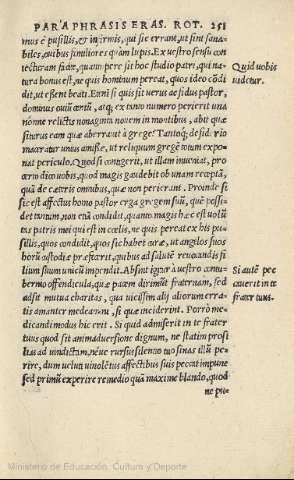 PARAPHRASIS ERAS. ROT. 251
mus è pusillis, & infirmis, qui sic errant, ut sint sana-
biles, ouibus similiores quàm lupis. Ex uestro sensu con
iecturam fiat, quàm pater sit hoc studio patri, qui na
tura bonus est, ne quis hominum pereat, quos ideo cōdi
dit, ut esset beati. Etenī si quis sit uerus aδidus pastor,
dominus ouiū centū, atq; ex tanto numero perierit una
nōnne relictis nonaginta nouem in montibus, abit quæ
siturus eam quæ aberrauit à grege? Tantoq; desiderio
maceratur unius amissæ, ut reliquum gregē totum expo
nat periculo. Quod si contigerit, ut illam inueniat, pro
certo dico uobis, quod magis gaudebit ob unam receptā,
quā de cæteris omnibus, quæ non perierant. Proinde si
sic est affectus homo pastor erga gregem suū, quē possi-
det tantum, non etiā condidit, quanto magis hæc est uolū
tas patris mei qui est in cœlis, ne quis pereat ex his pu-
sillis, quos condidit, quos sic habet caræ, ut angelos suos
horū custodiæ præfecerit, quibus ad salutē reuocandis fi
lium suum unicū impendit. Absint igitur à uestro contu-
bernio offendicula, quæ pacem dirimūt fraternam, sed
adsit mutua charitas, qua uicissim alij aliorum erra-
tis amanter medeamini, si quæ inciderint. Porrò me-
dicandi modus hic erit. Si quid admiserit in te frater
tuus quod sit animaduersione dignum, ne statim prosi
lias ad uindictam, neue rursus silentio tuo sinas illū pe-
rire, dum ueluti uiolētus affectibus suis peccat impune
sed primū experire remedio quā maxime blando, quod
ne pu-
Quid uobis
uidetur.
Si autē pec
cauerit in te
frater tuus.
Ministerio de Educación, Cultura y Deporte